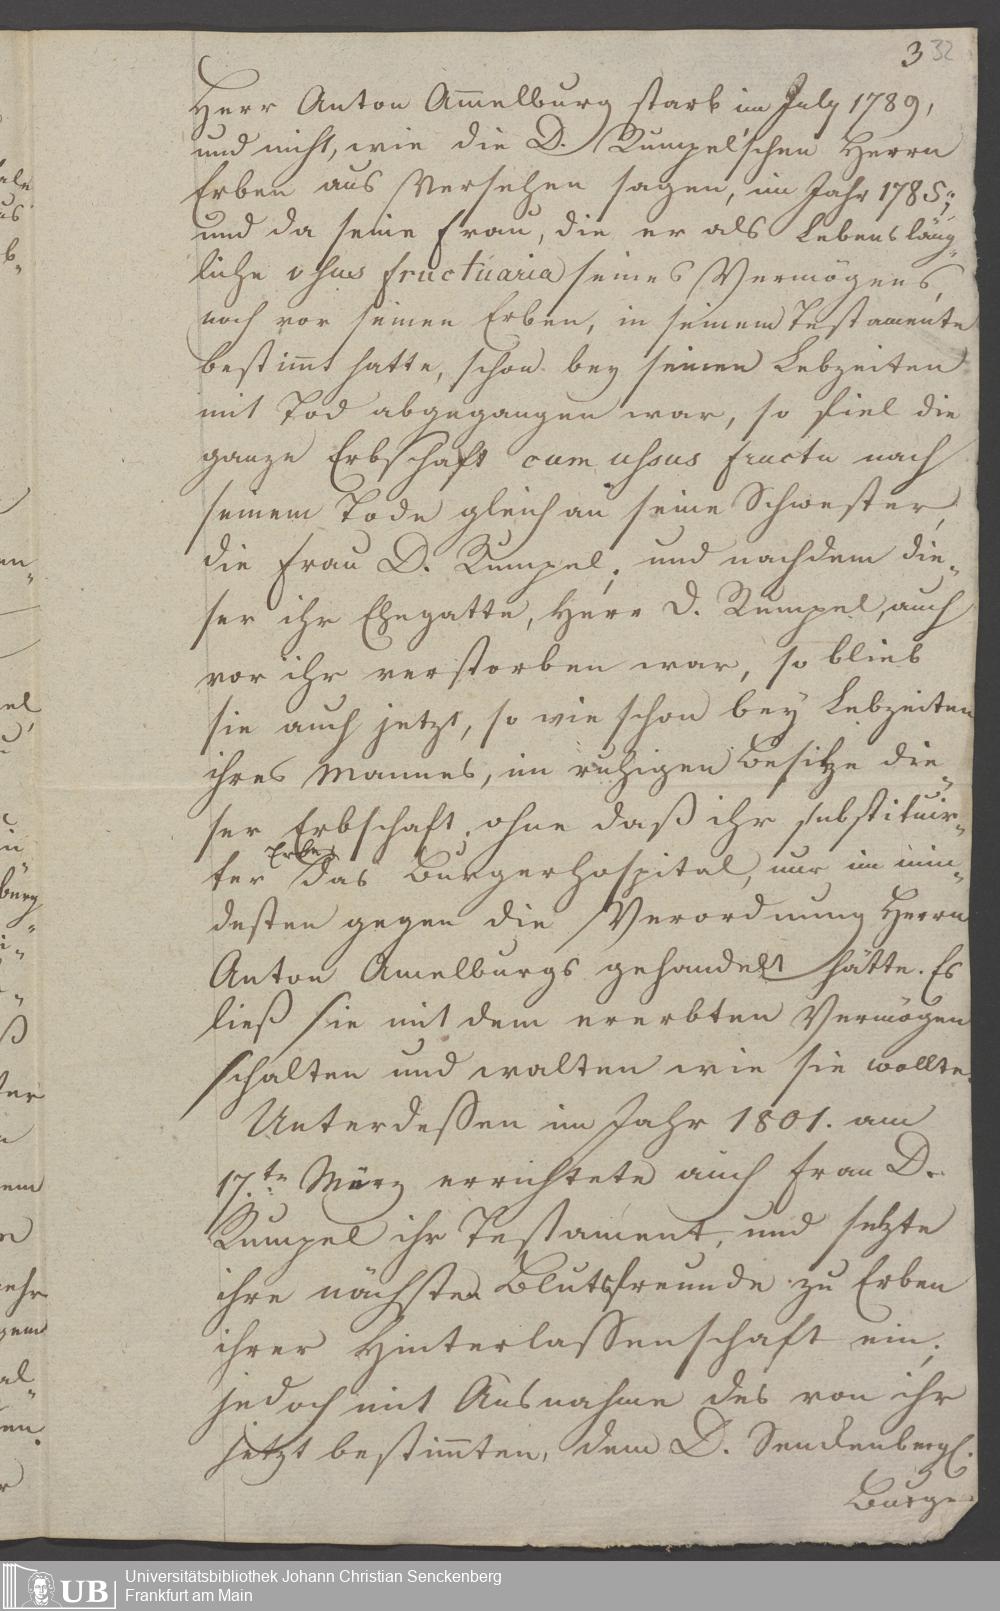 3 32
Herr Anton Am̄elburg starb im July 1789,
und nicht, wie die D. Rumpel'schen Herrn
Erben aus Versehen sagen, im Jahr 1785;
und da seine Frau, die er als Lebensläng„
liche usus fructuaria seines Vermögens,
noch vor seinen Erben, in seinem Testamente
bestim̄t hatte, schon bey seinen Lebzeiten
mit Tod abgegangen war, so fiel die
ganze Erbschaft cum usus fructu nach
seinem Tode gleich an seine Schwester,
die Frau D. Rumpel; und nachdem die„
ser ihr Ehegatte, Herr D. Rumpel, auch
vor ihr verstorben war, so blieb
sie auch jetzt, so wie schon bey Lebzeiten
ihres Mannes, im ruhigen Besitze die„
ser Erbschaft, ohne daß ihr substituir„
ter Erbe, das Burgerhospital, nur im min„
desten gegen die Verordnung Herrn
Anton Amelburgs gehandelt hätte. Es
ließ sie mit dem ererbten Vermögen
schalten und walten wie sie wollte.
Unterdessen im Jahr 1801. am
17.te März errichtete auch Frau D.
Rumpel ihr Testament, und setzte
ihre nächsten Blutsfreunde zu Erben
ihrer Hinterlassenschaft ein;
jedoch mit Ausnahme des von ihr
jetzt bestim̄ten, dem D. Senckenberg.
Burge
UB Universitätsbibliothek Johann Christian Senckenberg
Frankfurt am Main